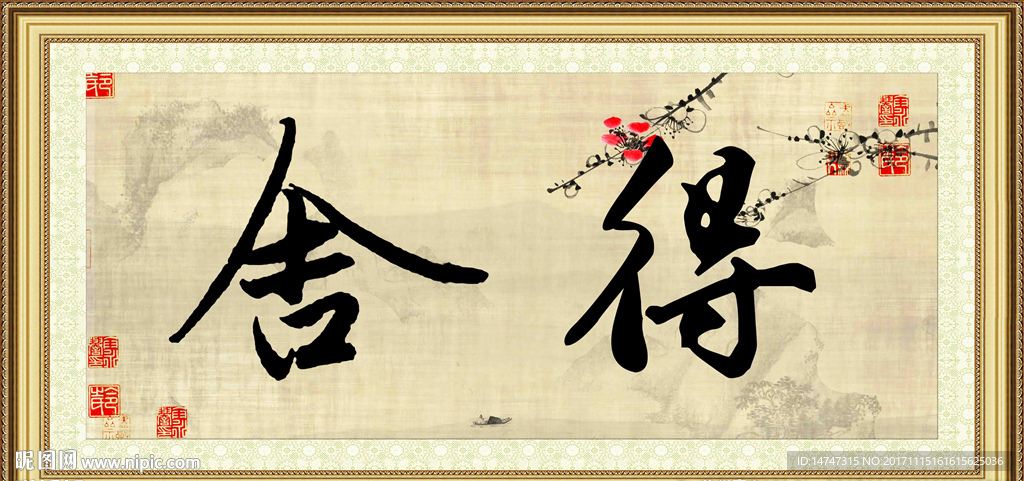 舍得
昵图网 www.nipic.com
ID:14747315 NO:20171115161615625036